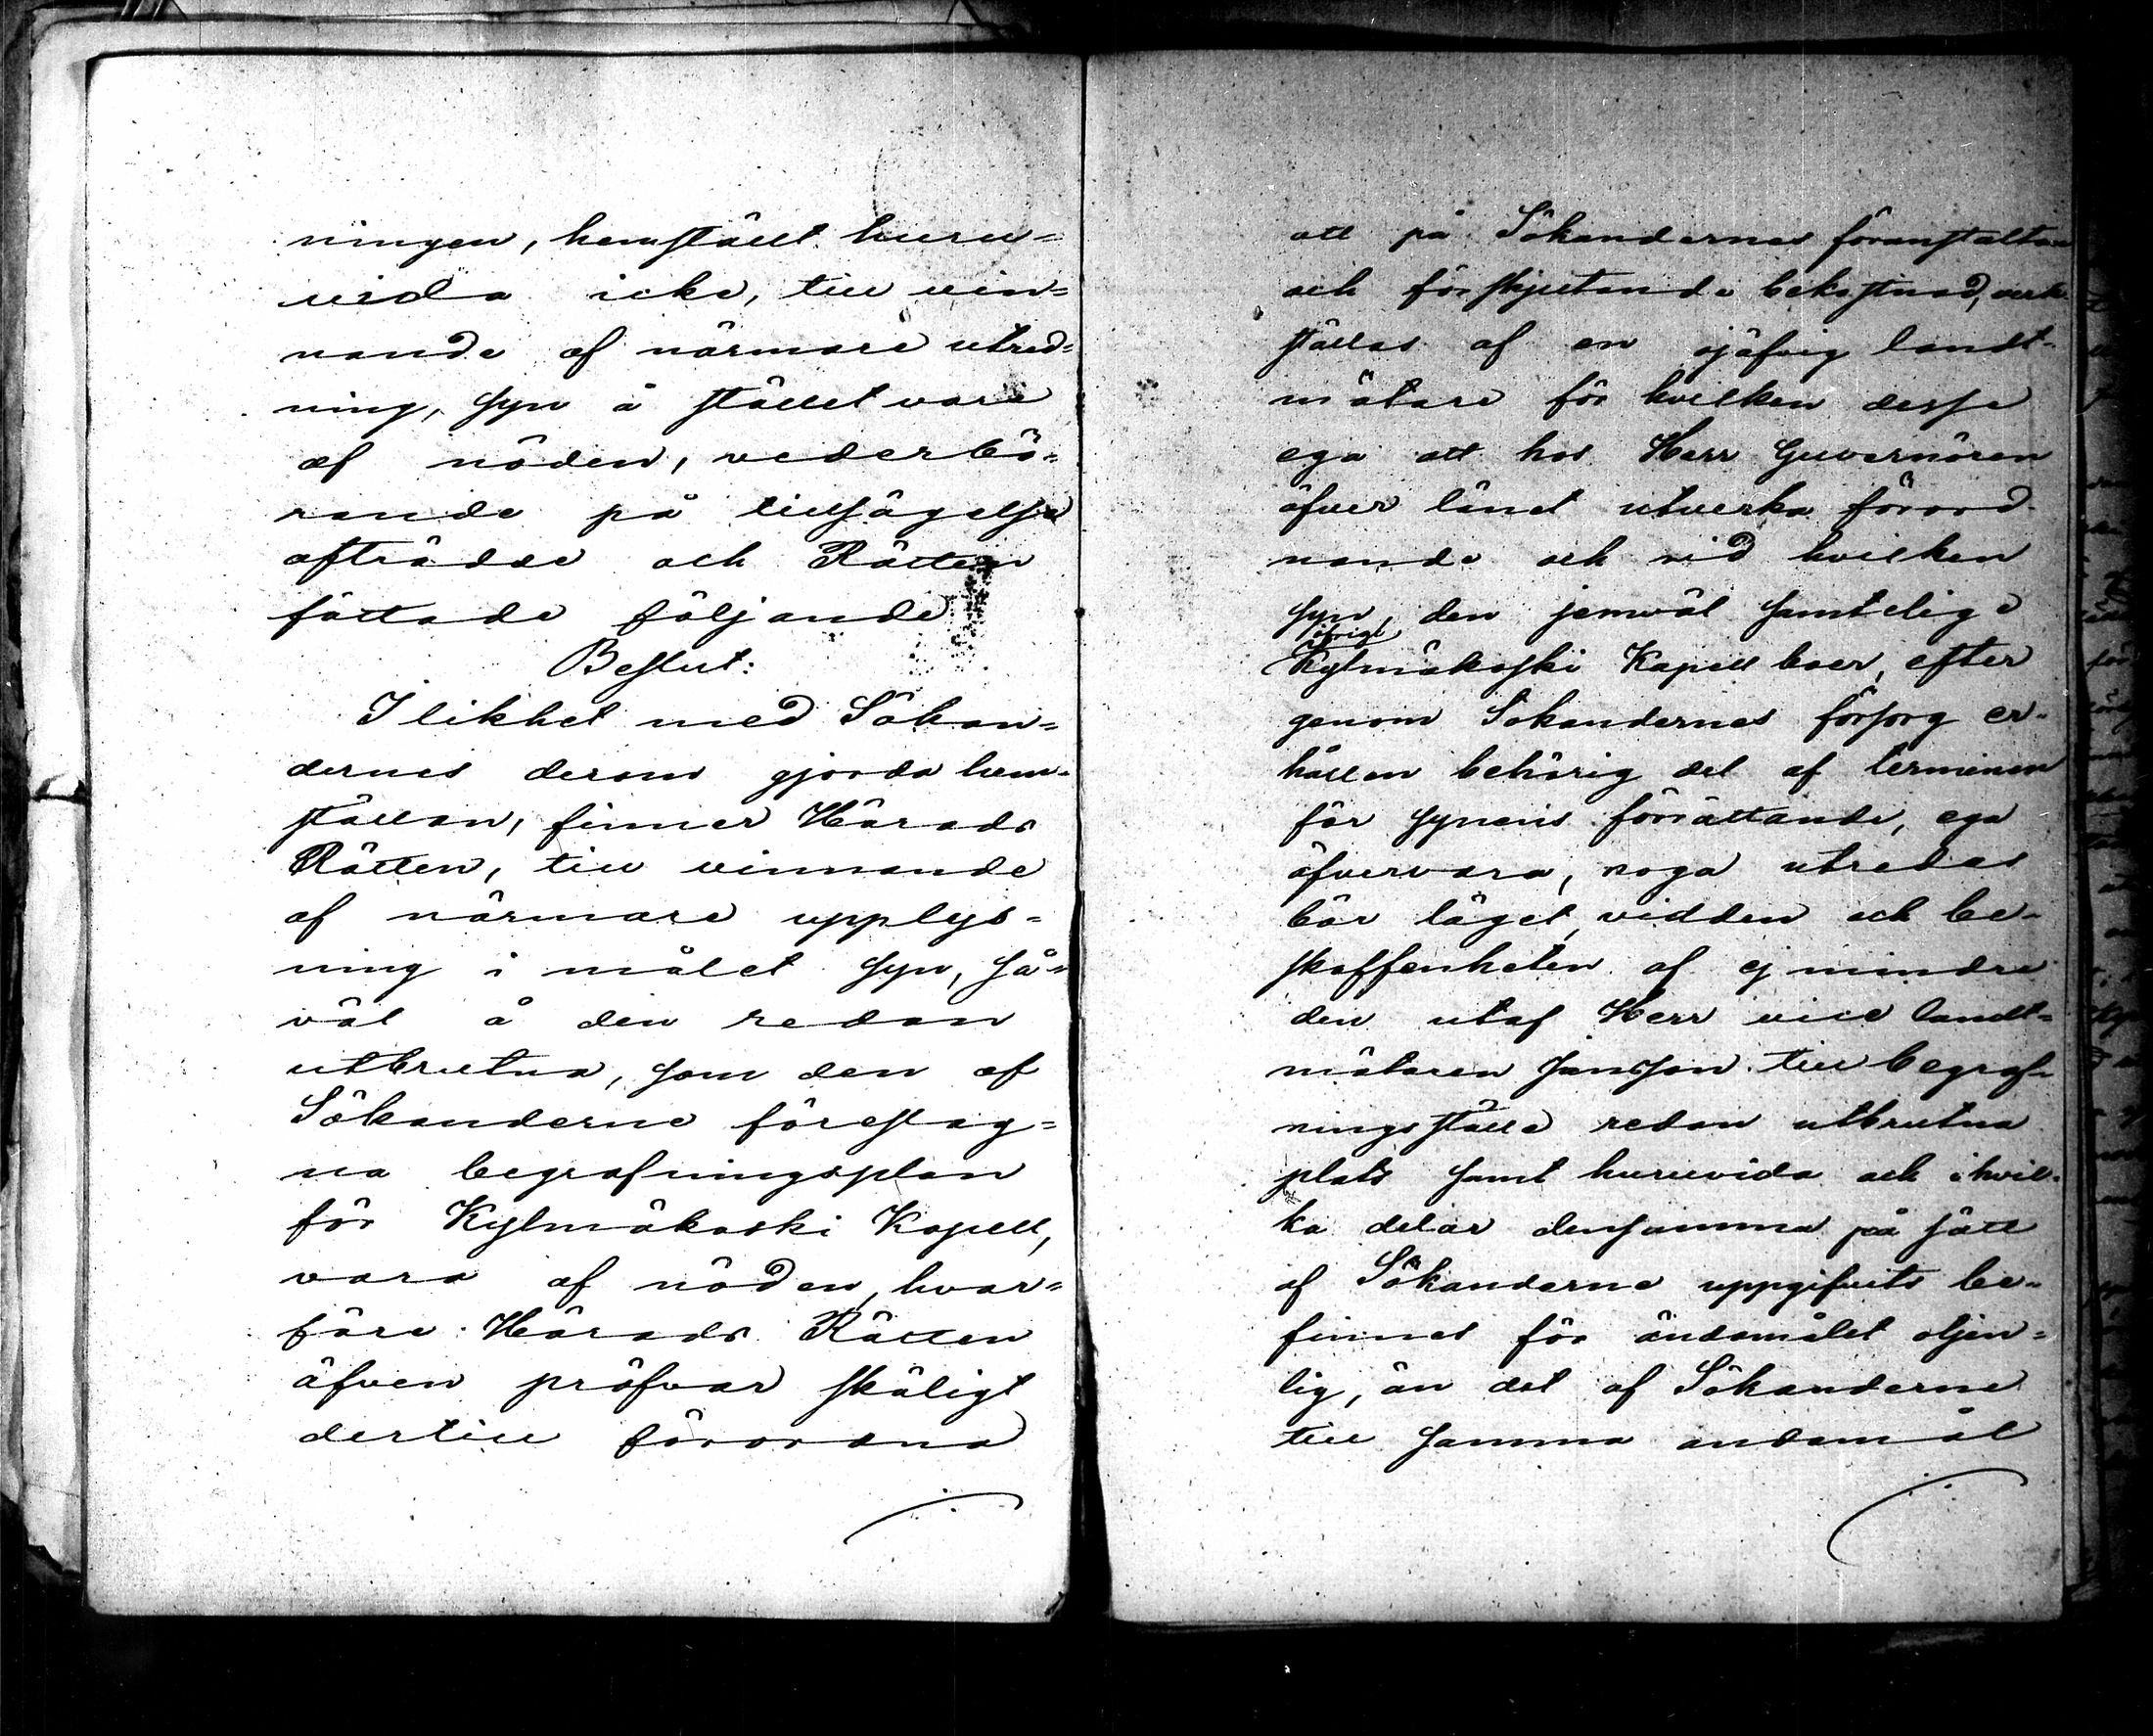 ningen, hemstält huru=
vida icke, till vin=
nande af närmare utred=
ning, syn å stället vore
af nöden, vederbö=
rande på tillsägelse
afträdde och Rätten
fattade följande
Beslut:
I likhet med Sökan=
dernes derom gjorda hem=
ställan, finner Härads
Rätten, till vinnande
af närmare upplys=
ning i målet syn, så=
väl å den redan
utbrutna, som den af
Sökanderne föreslag=
na begrafningsplan
för Kylmäkoski Kapell,
vara af nöden, hvar=
före Härads Rätten
äfven pröfvar skäligt
dertill förordna
att på Sökandernes föranstaltan
och förskjutande bekostnad, verk=
ställas af en ojäfvig landt=
mätare för hvilken desse
ega att hos Herr Guvernören
öfver länet utverka förord=
nande och vid hvilken
syn, den jemväl samtelige
öfrige
Kylmäkoski Kapell boer, efter
genom Sökandernes försorg er=
hållen behörig del af terminen
för synens förrättande, ega
öfvervara, noga utredas
bör läget, vidden och be=
skaffenheten af ej mindre
den utaf Herr vice landt=
mätaren Jansson till begraf=
ningsställe redan utbrutna
plats samt huruvida och i hvil=
ka delar densamma på sätt
af Sökanderne uppgifvits be=
finnes för ändamålet otjen=
lig, än det af Sökanderne
till samma andamål